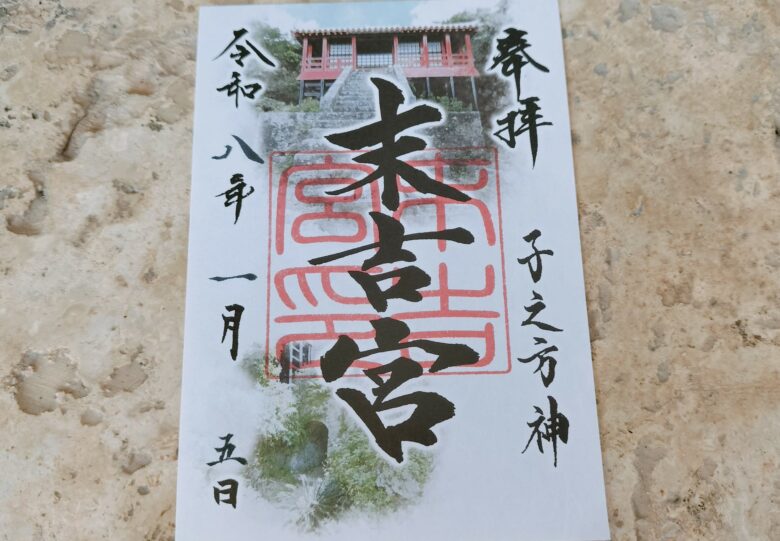 奉拝
子之方神
末吉宮
末吉宮印
令和八年一月五日